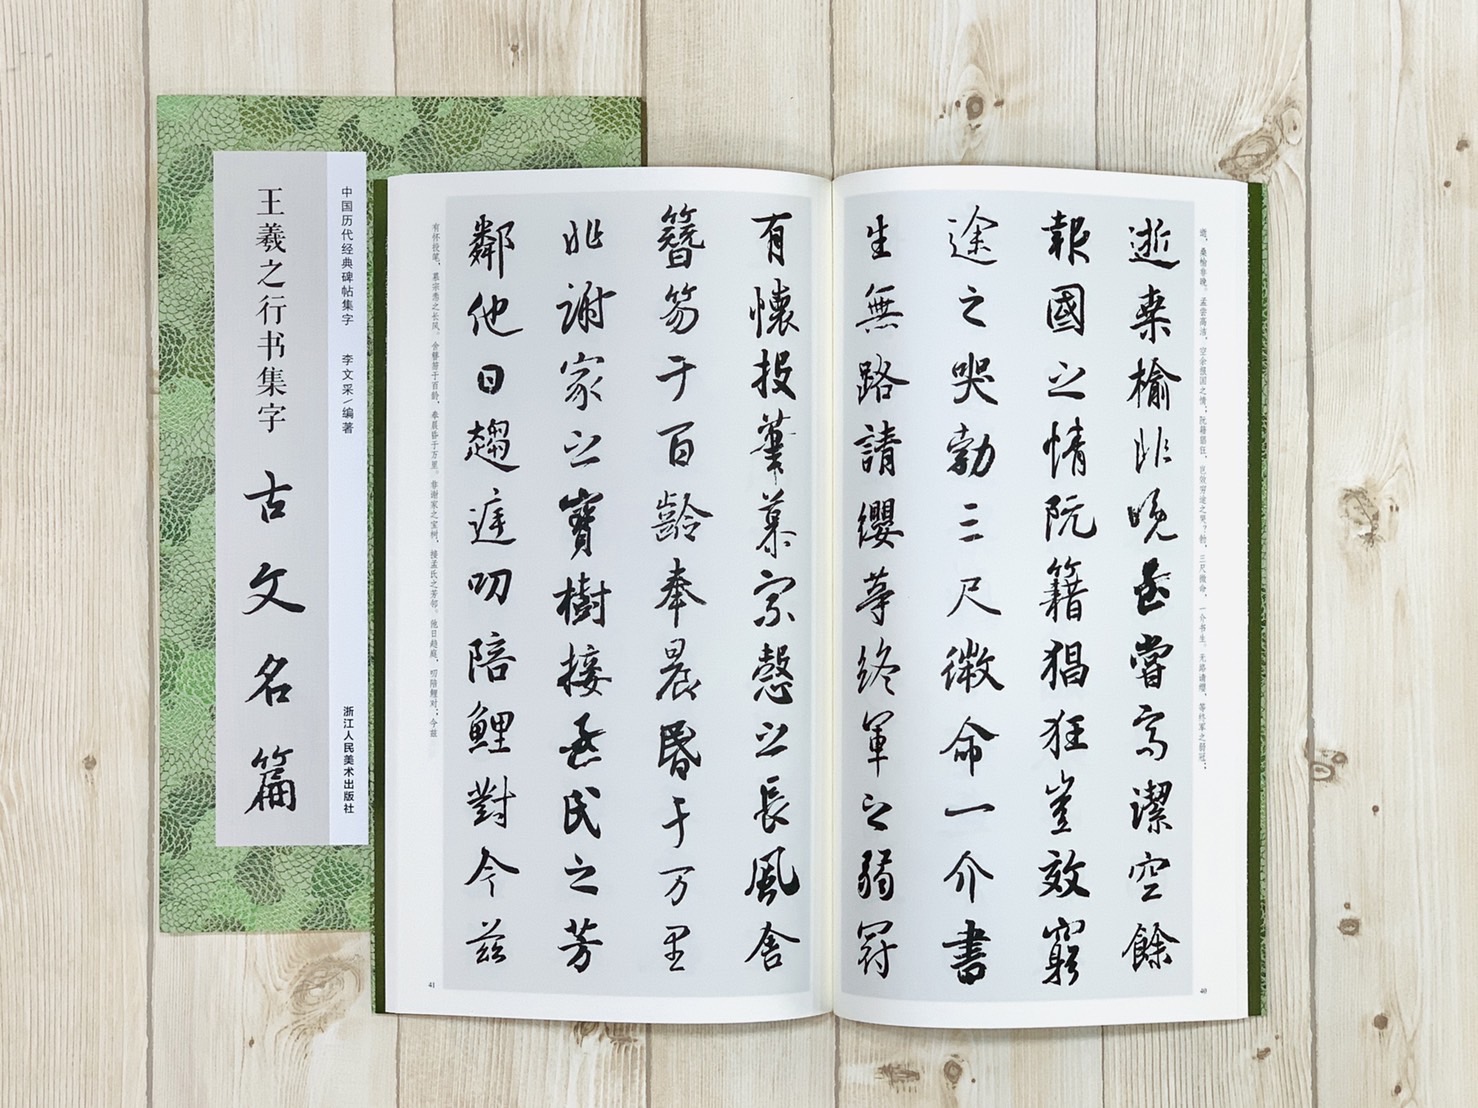 中国历代经典碑帖集字 李文采/编著 浙江人民美术出版社
王羲之行书集字 古文名篇
逝，桑榆非晚。孟尝高洁，空余报国之情；阮籍猖狂，岂效穷途之哭？勃，三尺微命，一介书生。无路请缨，等终军之弱冠；
逝桑榆非晚孟嘗高潔空餘
報國之情阮籍猖狂豈效窮
途之哭勃三尺微命一介書
生無路請纓等終軍之弱冠
40
有懷投筆慕宗慤之長風舍
簪笏于百齡奉晨昏于万里
非謝家之寶樹接孟氏之芳
鄰他日趨庭叨陪鯉對今茲
有怀投笔，慕宗悫之长风。舍簪笏于百龄，奉晨昏于万里。非谢家之宝树，接孟氏之芳邻。他日趋庭，叨陪鲤对；今兹
41